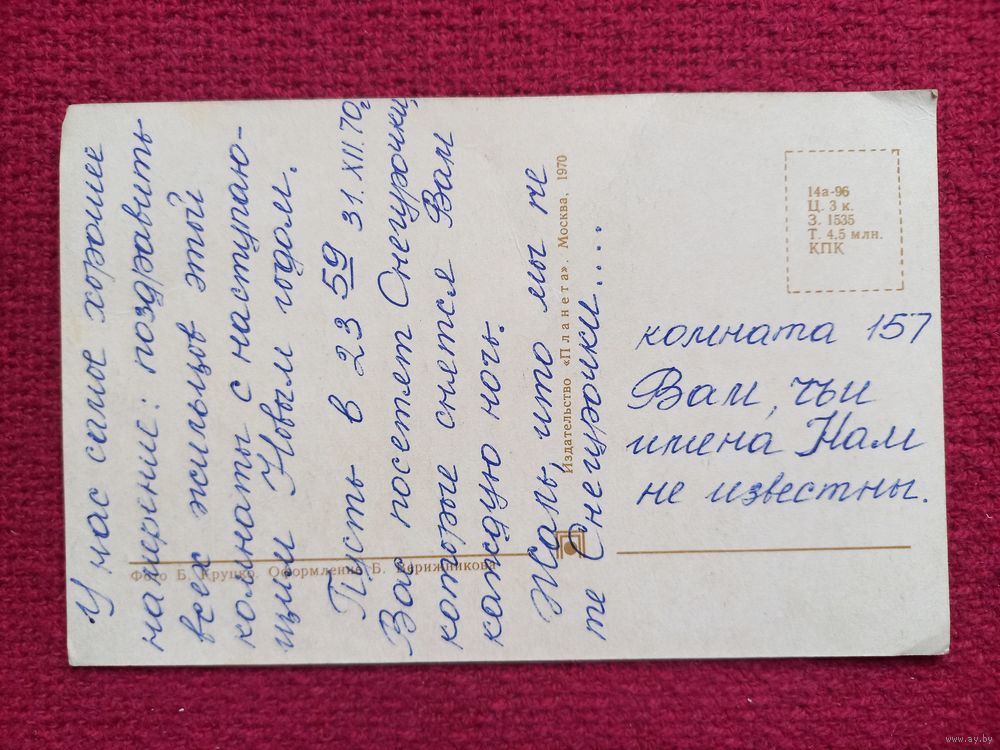 У нас самые хорошие
намерение: поздравить
всех жильцов этой
комнаты с наступаю-
щим Новым годом.
Пусть в 23 59 31.XII.70г
Вас посетят Снегурочки,
которые снятся Вам
каждую ночь.
Жаль, что мы не
те Снегурочки....
комната 157
Вам, чьи
имена Нам
не известны.
14а-96
Ц. 3 к.
З. 1535
Т. 4,5 млн.
КПК
Издательство «Планета». Москва, 1970
Фото Б. Круцко. Оформление Б. Верижникова
www.ay.by